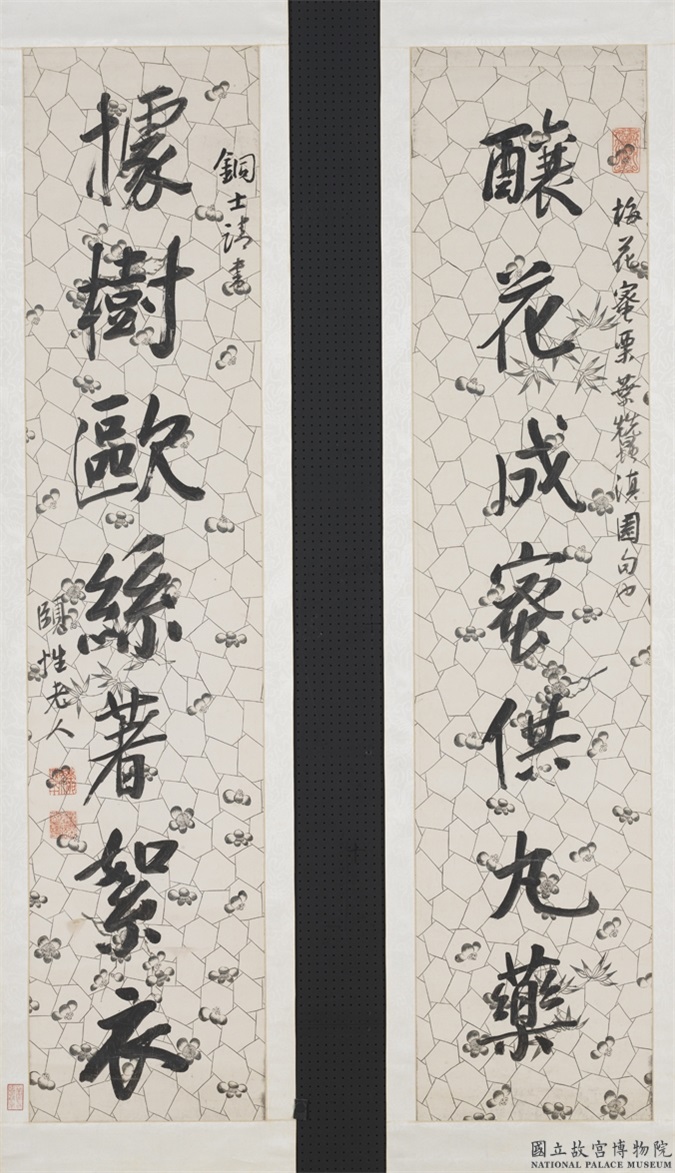 梅花蜜栗葉蠶滇園句也
釀花成蜜供丸藥
銅士請書
據樹歐絲著絮衣
頤性老人
國立故宮博物院
NATIONAL PALACE MUSEUM